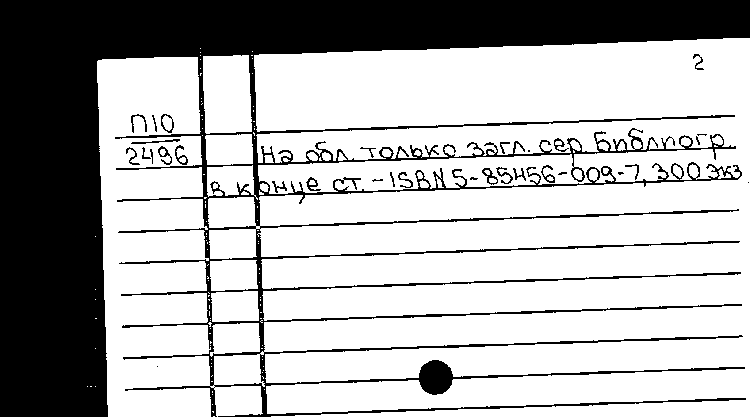 2
П10
2496
На обл. только загл. сер Библиогр.
в конце ст. - ISBN 5-85456-009-7, 300 экз